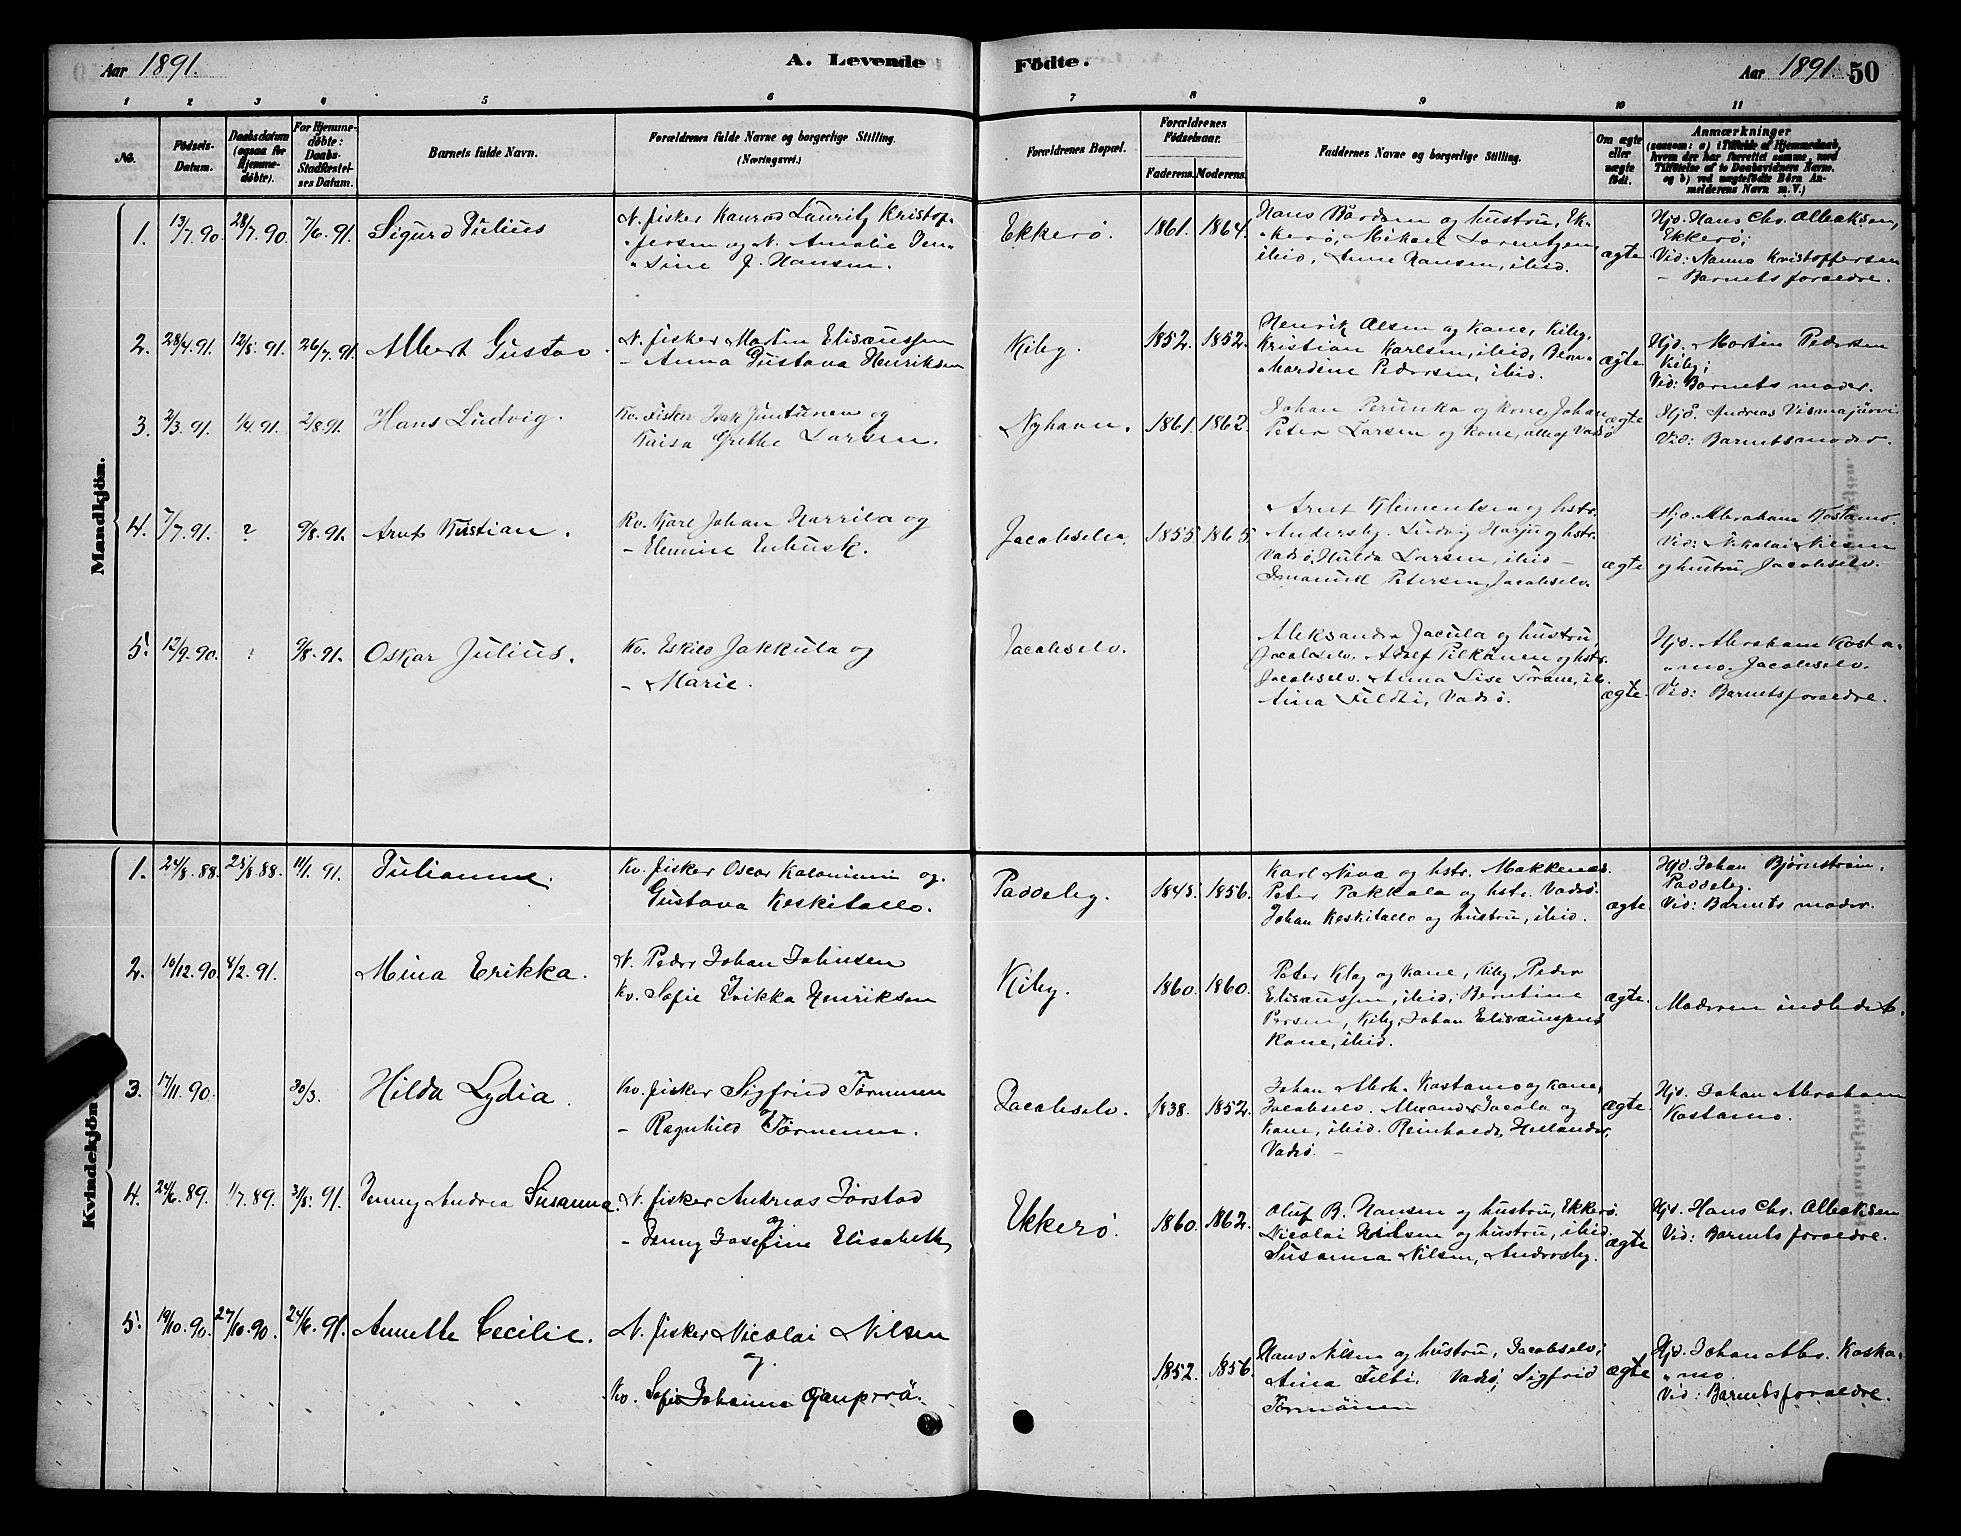 Aar 1891. A. Levende Födte. Aar 1891. 50
1 2 3 4 5 6 7 8 9 10 11
No.
Födsels-
Datum.
Daabsdatum
(ogsaa for
Hjemme-
döbte).
For Hjemme-
döbte:
Daabs-
Stadfæstel-
ses Datum.
Barnets fulde Navn.
Forældrenes fulde Navne og borgerlige Stilling.
(Næringsvei.)
Forældrenes Bopæl.
Forældrenes
Födselsaar.
Faderens. Moderens.
Faddernes Navne og borgerlige Stilling.
Om ægte
eller
uægte
födt.
Anmærkninger
(saasom: a) i Tilfælde af Hjemmedaab,
hvem der har forrettet samme, med
Tilföielse af to Daabsvidners Navne,
og b) ved uægtefödte Börn An-
melderens Navn m. V.)
Mandkjön.
1. 13/7.90. 28/7.90. 7/6.91. Sigurd Julius
N. fisker Konrad Lauritz Kristof-
fersen og N. Amalie Jen-
sine J. Hansen.
Ekkerö. 1861. 1864.
Hans Bårdsen og hustru, Ek-
kerö, Mikael Lorentzen,
ibid, Anne Hansen, ibid.
ægte
Hjd. Hans Chr. Albaksen,
Ekkerö;
Vid: Nanna Kristoffersen
- Barnets foraeldre.
2. 28/4.91. 12/8.91. 26/7.91. Albert Gustav.
N. fisker Martin Elisæussen
- Anna Gustava Henriksen
Kiby. 1852. 1852.
Henrik Olsen og Kone, Kiby,
Kristian Karlsen, ibid, Bern-
hardine Pedersen, ibid.
ægte
Hjd. Martin Pedersen
Kiby;
Vid: Barnets moder.
3. 2/3.91. 1/4.91. 2/8.91. Hans Ludvig.
Kv. Fisker Isak Juntunen og
Kaisa Grethe Larsen.
Nyhavn. 1861. 1862.
Johan Perunka og Kone, Johan
Peter Larsen og Kone, alle af Vadsö
ægte
Hjd. Andreas Vismajärvi
Vid: Barnets moder.
4. 7/7.91. ? 9/8.91. Arnt Kristian.
Kv. Karl Johan Harrila og
- Elenine Enbusk.
Jacobselv. 1855 1865.
Arnt Klementsen og hstr.
Andersby. Ludvig Harju og hstr.
Vadsö, Hulda Larsen, ibid -
Imanuel Petersen, Jacobselv.
ægte
Hjd. Abraham Kostamo.
Vid: Nikolai Nilsen
og hustru, Jacobselv.
5. 12/9.90. ? 9/8.91. Oskar Julius.
Kv. Eskild Jakkula og
- Marie.
Jacobselv.
Aleksandra Jacula og hustru,
Jacobselv. Adolf Pelkänen og hstr.
Jacobselv. Anna Lise Trane, ib.
Aina Fildti, Vadsö.
ægte
Hjd. Abraham Kosta-
mo. Jacobselv.
Vid: Barnets foraeldre.
Kvindekjön.
1. 24/8.88. 25/8.88. 11/1.91. Julianne.
Kv. fisker Oscar Kalaniemi og
Gustava Keskitallo.
Paddeby. 1845. 1856.
Karl Niva og hstr. Makkenes.
Peter Pakkala og hstr. Vadsö.
Johan Keskitallo og hustru, ibid.
ægte.
Hjd. Johan Bjørnstrøm,
Paddeby.
Vid: Barnets moder.
2. 10/12.90. 4/2.91. Mina Erikka.
N. Peder Johan Johnsen
og
Kv. Sofie Erikka Henriksen
Kiby. 1860. 1860.
Peter Klog og Kone, Kiby, Peder
Elisæussen, ibid; Berntine
Persen, Kiby, Johan Elisæussens
Kone, ibid.
ægte.
Moderen indledet.
3. 17/11.90. 30/3. Hilda Lydia.
Kv. fisker Sigfrid Törmänen
og
- Ragnhild Törmenen.
Jacobselv. 1838. 1852.
Johan Abrh. Kostamo og Kone,
Jacobselv. Alexander Jacola og
Kone, ibid. Reinholdt Hellander,
Vadsö. -
ægte
Hjd. Johan Abraham
Kostamo.
4. 24/6.89. 1/7.89. 31/8.91. Jenny Andrea Susanna.
N. fisker Andreas Jörstad
og
- Jenny Josefine Elisabeth
Ekkerö. 1860. 1862.
Oluf B. Hansen og hustru, Ekkerö.
Nicolai Nilsen og hustru, ibid,
Susanna Nilsen, Andersby.
ægte
Hjd. Hans Chr. Albaksen
Vid: Barnets foraeldre.
5. 19/10.90. 27/10.90. 24/6.91. Annette Cecilie.
N. fisker Nicolai Nilsen
og
Kv. Sofie Johanna
1852. 1856.
Hans Nilsen og hustru, Jacobselv;
Aina Filti, Vadsö, Sigfrid
Törmänen
ægte
Hjd. Johan Abr. Kosta-
mo.
Vid: Barnets foraeldre.